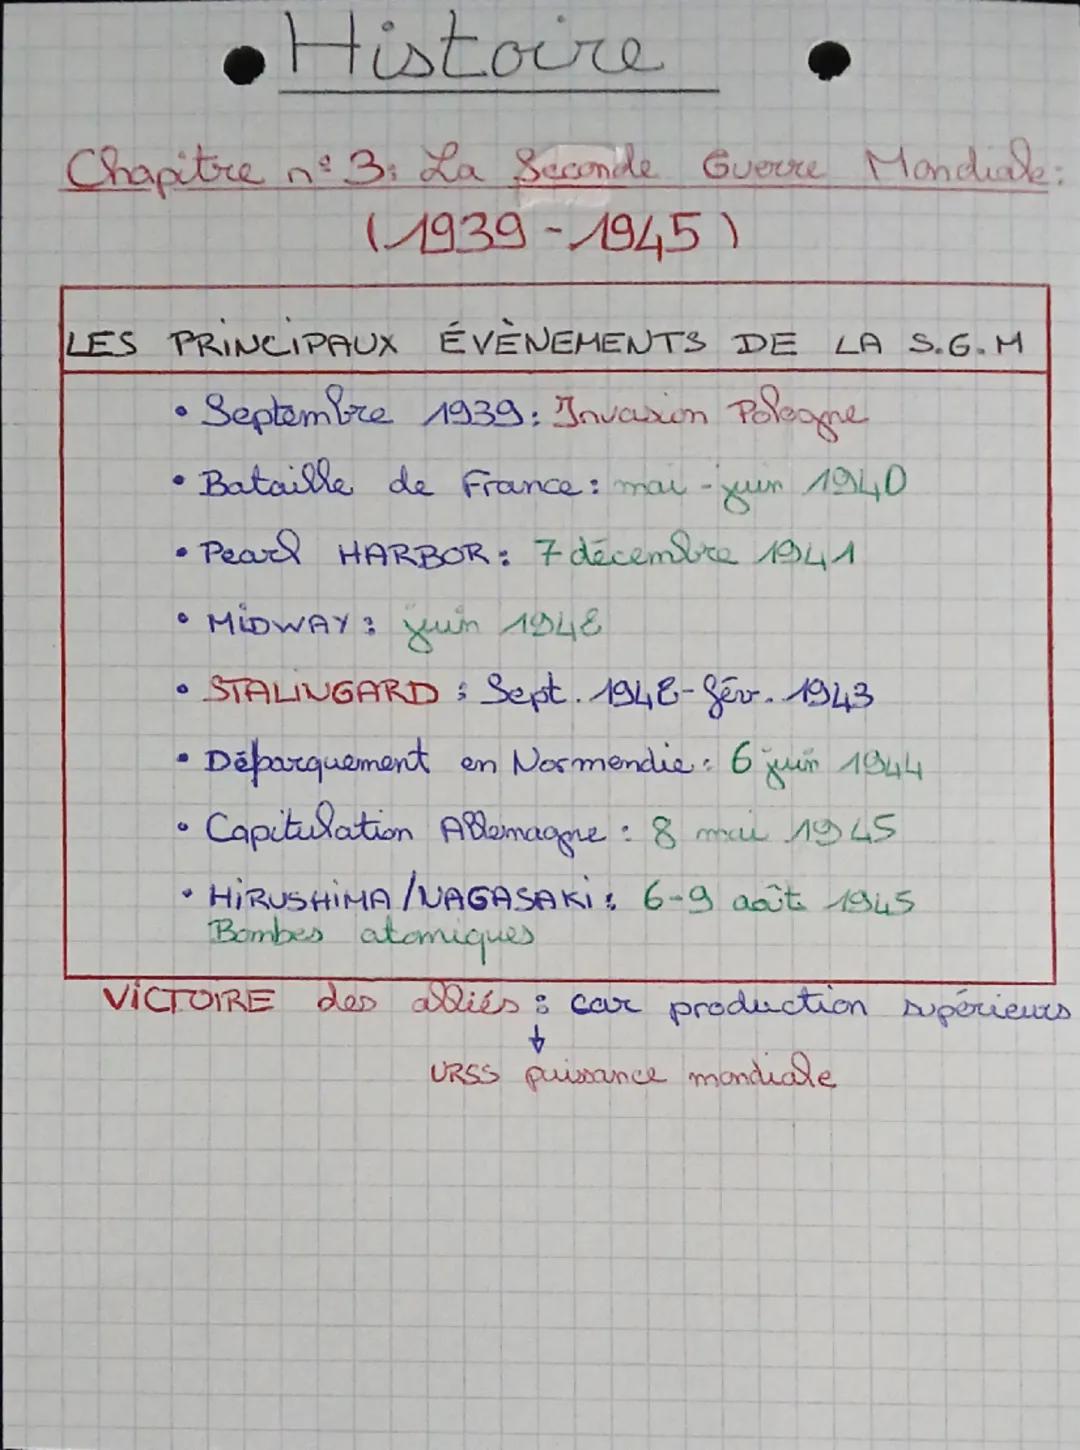 Histoire
Chapitre n° 3: La Seconde Guerre Mondiale:
(1939-1945)
LES PRINCIPAUX ÉVÈNEMENTS DE LA S.G.M
• Septembre 1939: Invasion Pologne
• Bataille de France: mai-juin 1940
• Pearl HARBOR: 7 décembre 1941
• MIDWAY: juin 1942
• STALINGARD: Sept. 1942-fév. 1943
• Débarquement en Normendie: 6 juin 1944
• Capitulation Allemagne: 8 mai 1945
• HIRUSHIMA/NAGASAKI: 6-9 août 1945
Bombes atomiques
VICTOIRE des alliés: car production supérieurs
↓
URSS puissance mondiale